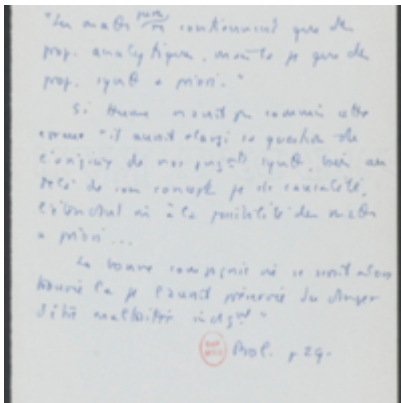 "Les maths pures ne contiennent que des
prop. analytiques, la méta φ que des
prop. synt. a priori."
Si Hume n'avait pas commis cette
erreur "il aurait élargi sa question de
l'origine de nos jugts synt. bien au
delà de son concept φ de causalité,
l'étendant à la possibilité des maths
a priori...
La bonne compagnie où se serait alors
trouvée la φ l'aurait préservée du danger
d'être maltraitée indigt"
Prol. p 29.